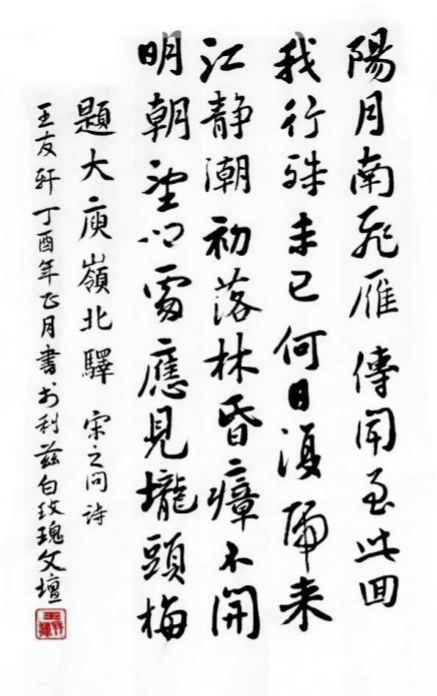 陽月南飛雁傳聞至此回
我行殊未已何日復歸来
江静潮初落林昏瘴不開
明朝望鄉處應見壠頭梅
題大庾嶺北驛 宋之問诗
王友轩 丁酉年正月書於利兹白玫瑰文壇